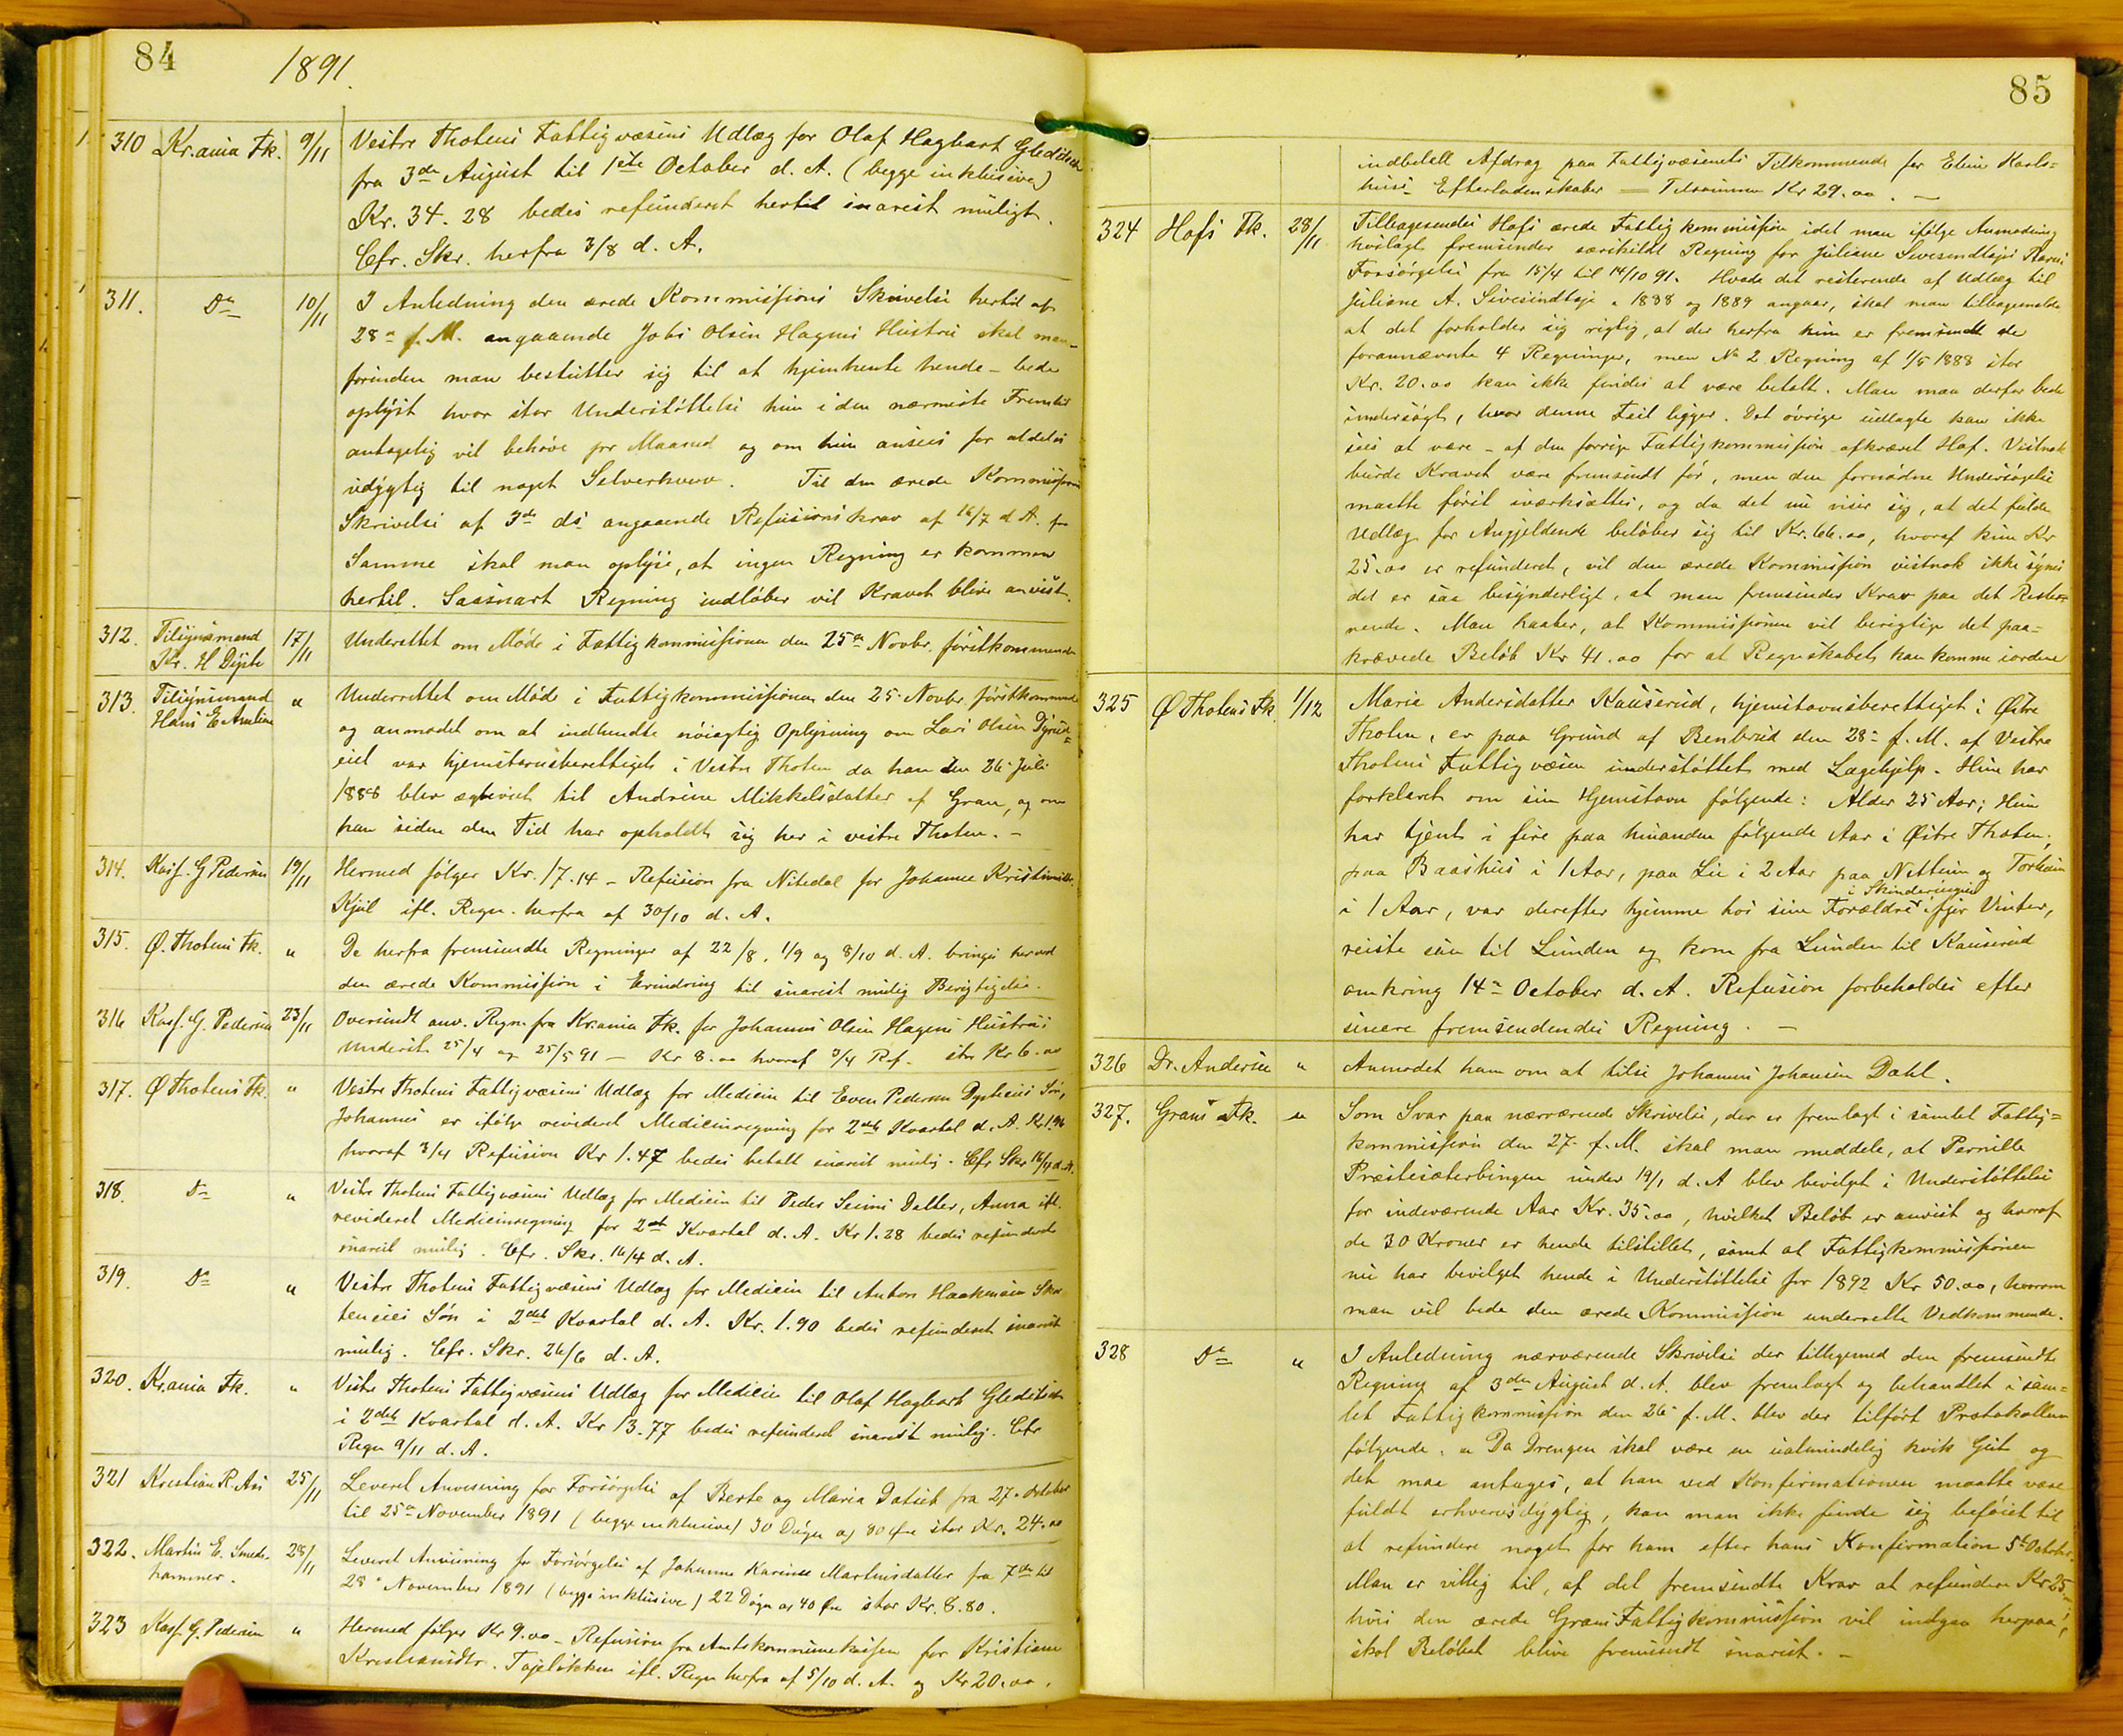 84
1891.
310 Kr.ania Fk. 9/11 Vestre Thotens Fattigvæsens Udlæg for Olaf Hagbart Gleditsch
fra 3die August til 1ste October d. A. (begge inklusive)
Kr. 34.28 bedes refunderet hertil snarest muligt.
Cfr. Skr. herfra 3/8 d. A.
311. Do 10/11 I Anledning den ærede Kommissions Skrivelse hertil af
28de f. M. angaaende Johs Olsen Hagens Hustru skal man
forinden man beslutter sig til at hjemhente hende - bede
oplyst hvor stor Understøttelse hun i den nærmeste Fremtid
antagelig vil behøve pr Maaned og om hun ansees for aldeles
udygtig til noget Selverhverv. Til den ærede Kommissions
Skrivelse af 3de ds angaaende Refusionskrav af 16/7 d. A. for
Samme skal man oplyse, at ingen Regning er kommen
hertil. Saasnart Regning indløber vil Kravet blive anvist.
312. Tilsynsmand Kr. H Dyste 17/11 Underettet om Møde i Fattigkommissionen den 25de Novbr. førstkommende
313. Tilsynsmand Hans E. " Underrettet om Møde i Fattigkommissionen den 25 Novbr. førstkommende
og anmodet om at indhendte nøiagtig Oplysning om Lars Olsen
eiet var hjemstavnsberettiget i Vestre Thoten da han den 26 Juli
1888 blev ægteviet til Andrine Mikkelsdatter af Gran, og om
han siden den Tid har opholdt sig her i vestre Thoten. -
314. Kasf. G Pedersen 19/11 Hermed følger Kr. 17.14 - Refusion fra Nitedal for Johanne
Kjul ifl. Regn. herfra af 30/10 d. A.
315. Ø. Thotens Fk. " De herfra fremsendte Regninger af 22/8, 1/9 og 8/10 d. A. bringes herved
den ærede Kommission i Erindring til snarest mulig Berigtigelse.
316 Kasf. G. Pedersen 23/11 Oversendt anv. Regn. fra Kr.ania Fk. for Johannes Olsen Hagens Hustrus
Underst. 25/4 og 25/5 91 - Kr 8.00 hvoraf 3/4 Ref. stor Kr 6.00
317. Ø Thotens Fk. " Vestre Thotens Fattigvæsens Udlæg for Medicin til Even Pedersen Dysteeies Søn,
Johannes er ifølge revideret Medicinregning for 2det Kvartal d. A. Kr 1.96
hvoraf 3/4 Refusion Kr 1.47 bedes betalt snarest mulig. Cfr Skr 16/4 d. A.
318. Do " Vestre Thotens Fattigvæsens Udlæg for Medicin til Peder Datter, Anna ifl.
revideret Medicinregning for 2det Kvartal d. A. Kr 1.28 bedes refunderet
snarest mulig. Cfr. Skr. 16/4 d. A.
319. Do " Vestre Thotens Fattigvæsens Udlæg for Medicin til Anton Haakensen
Søn i 2det Kvartal d. A. Kr. 1.90 bedes refunderet snarest
mulig. Cfr. Skr. 26/6 d. A.
320. Kr.ania Fk. " Vestre Thotens Fattigvæsens Udlæg for Medicin til Olaf Hagbart Gleditsch
i 2det Kvartal d. A. Kr 13.77 bedes refunderet snarest mulig. Cfr
Regn 9/11 d. A.
321 Kristian R. 25/11 Leveret Anvisning for Forsørgelse af Berte og Maria fra 27. October
til 25de November 1891 (begge inklusive) 30 Døgn a 80 Øre stor Kr. 24.00
322. Martin E. Smedshammer. 28/11 Leveret Anvisning for Forsørgelse af Johanne Karense Martinsdatter fra 7de til
28de November 1891 (begge inklusive) 22 Døgn a 40 Øre stor Kr. 8.80.
323 Kasf. G. Pedersen " Hermed følger Kr 9.00 - Refusion fra Amtskommunekassen for Kristiane
Tajeløkken ifl. Regn herfra af 5/10 d. A. og Kr 20.00.
85
indbetalt Afdrag paa Fattigvæsenets Tilkommende for Eline Karls=
hus Efterladenskaber — Tilsammen Kr 29.00. —
324 Hofs Fk. 28/11 Tilbagesendes Hofs ærede Fattigkommission idet man ifølge Anmodning
hoslagt fremsender særskildt Regning for Juliane Barns
Forsørgelse fra 15/4 til 14/10 91. Hvad det resterende af Udlæg til
Juliane A. 1888 og 1889 angaar, skal man tilbagemelde
at det forholder sig rigtig, at der herfra kun er fremsendt de
forannævnte 4 Regninger, men No 2 Regning af 1/5 1888 stor
Kr. 20.00 kan ikke findes at være betalt. Man maa derfor bede
undersøgt, hvor denne Feil ligger. Det øvrige udlagte kan ikke
sees at være - af den forrige Fattigkommission - afkrævet Hof. Vistnok
burde Kravet være fremsendt før, men den fornødne Undersøgelse
maatte først iværksættes, og da det nu viser sig, at det fulde
Udlæg for Angjeldende beløber sig til Kr. 66.00, hvoraf kun Kr
25.00 er refunderet, vil den ærede Kommission vistnok ikke synes
det er saa besynderligt, at man fremsender Krav paa det Reste=
rende. Man haaber, at Kommissionen vil berigtige det paa=
krævede Beløb Kr 41.00 for at Regnskabet kan komme iorden
325 Ø Thotens Fk. 1/12 Marie Andersdatter Kauserud, hjemstavnsberettiget i Østre
Thoten, er paa Grund af Benbrud den 28de f. M. af Vestre
Thotens Fattigvæsen understøttet med Lægehjelp. Hun har
forklaret om sin Hjemstavn følgende: Alder 25 Aar; Hun
har tjent i fire paa hinanden følgende Aar i Østre Thoten,
paa Baashus i 1 Aar, paa Lie i 2 Aar paa Nettum og
i 1 Aar, var derefter hjemme hos sine Forældre i Skinderengen ifjor Vinter,
reiste saa til Lunden og kom fra Lunden til Kauserud
omkring 14de October d. A. Refusion forbeholdes efter
senere fremsendendes Regning. —
326 Dr. Andersen " Anmodet ham om at tilse Johannes Johansen Dahl.
327. Grans Fk. " Som Svar paa nærværende Skrivelse, der er fremlagt i samlet Fattig=
kommission den 27. f. M. skal man meddele, at Pernille
Præstesæterbingen under 19/1 d. A blev bevilget i Understøttelse
for indeværende Aar Kr. 35.00, hvilket Beløb er anvist og hvoraf
de 30 Kroner er hende tilstillet, samt at Fattigkommissionen
nu har bevilget hende i Understøttelse for 1892 Kr 50.00, hvorom
man vil bede den ærede Kommission underrette Vedkommende.
328 Do " I Anledning nærværende Skrivelse der tilligemed den fremsendte
Regning af 3die August d. A. blev fremlagt og behandlet i sam=
let Fattigkommission den 26 f. M. blev der tilført Protokollen
følgende: „ Da Drengen skal være en ualmindelig kvik Gut og
det maa antages, at han ved Konfirmationen maatte være
fuldt erhvervsdygtig, kan man ikke finde sig beføiet til
at refundere noget for ham efter hans Konfirmation 5te October.
Man er villig til, af det fremsendte Krav at refundere Kr 25
hvis den ærede Grans Fattigkommission vil indgaa herpaa,
skal Beløbet blive fremsendt snarest. —